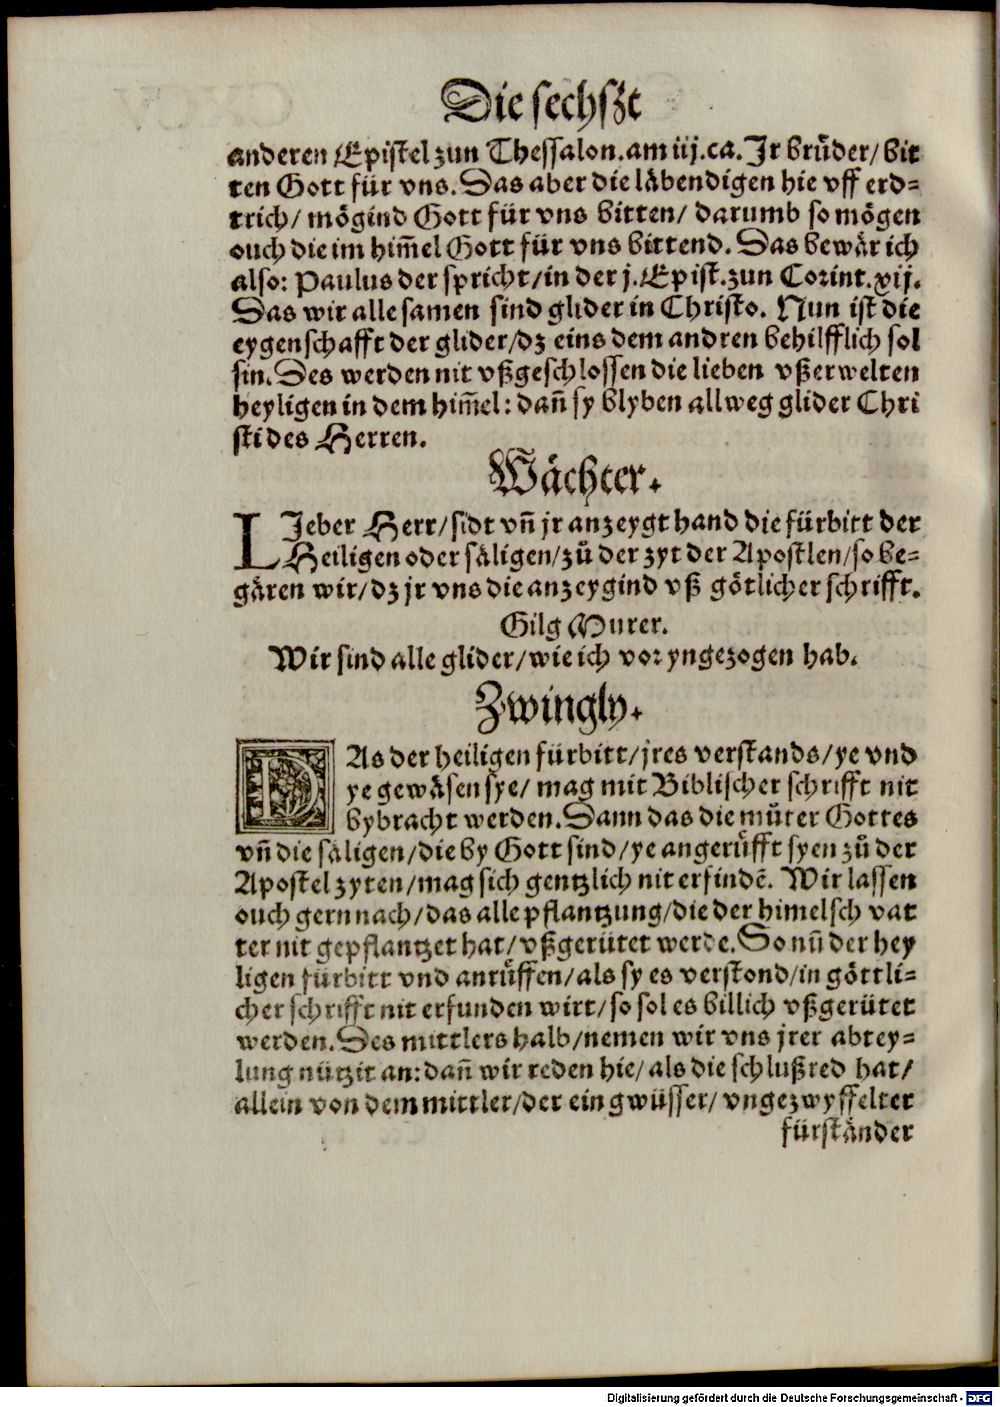 Die sechszt
anderen Epistel zun Thessalon. am iij. ca. Jr brůder/ bit
ten Gott für vns. Das aber die läbendigen hie vff erd-
trich/ mögind Gott für vns bitten/ darumb so mögen
ouch die im him̃el Gott für vns bittend. Das bewär ich
also: Paulus der spricht/ in der j. Epist. zun Corint. xij.
Das wir alle samen sind glider in Christo. Nun ist die
eygenschafft der glider/ dz eins dem andren behilfflich sol
sin. Des werden nit vßgeschlossen die lieben vßerwelten
heyligen in dem him̃el: dañ sy blyben allweg glider Chri
sti des Herren.
Wächter.
LIeber Herr/ sidt vñ jr anzeygt hand die fürbitt der
Heiligen oder säligen/ zů der zyt der Apostlen/ so be-
gären wir/ dz jr vns die anzeygind vß götlicher schrifft.
Gilg Murer.
Wir sind alle glider/ wie ich vor yngezogen hab.
Zwingly.
DAs der heiligen fürbitt/ jres verstands/ ye vnd
ye gewäsen sye/ mag mit Biblischer schrifft nit
bybracht werden. Dann das die můter Gottes
vñ die säligen/ die by Gott sind/ ye angerůfft syen zů der
Apostel zyten/ mag sich gentzlich nit erfindẽ. Wir lassen
ouch gern nach/ das alle pflantzung/ die der himelsch vat
ter nit gepflantzet hat/ vßgerütet werde. So nũ der hey
ligen fürbitt vnd anrůffen/ als sy es verstond/ in göttli-
cher schrifft nit erfunden wirt/ so sol es billich vßgerütet
werden. Des mittlers halb/ nemen wir vns jrer abtey-
lung nützit an: dañ wir reden hie/ als die schlußred hat/
allein von dem mittler/ der ein gwüsser/ vngezwyffelter
fürständer
Digitalisierung gefördert durch die Deutsche Forschungsgemeinschaft - DFG